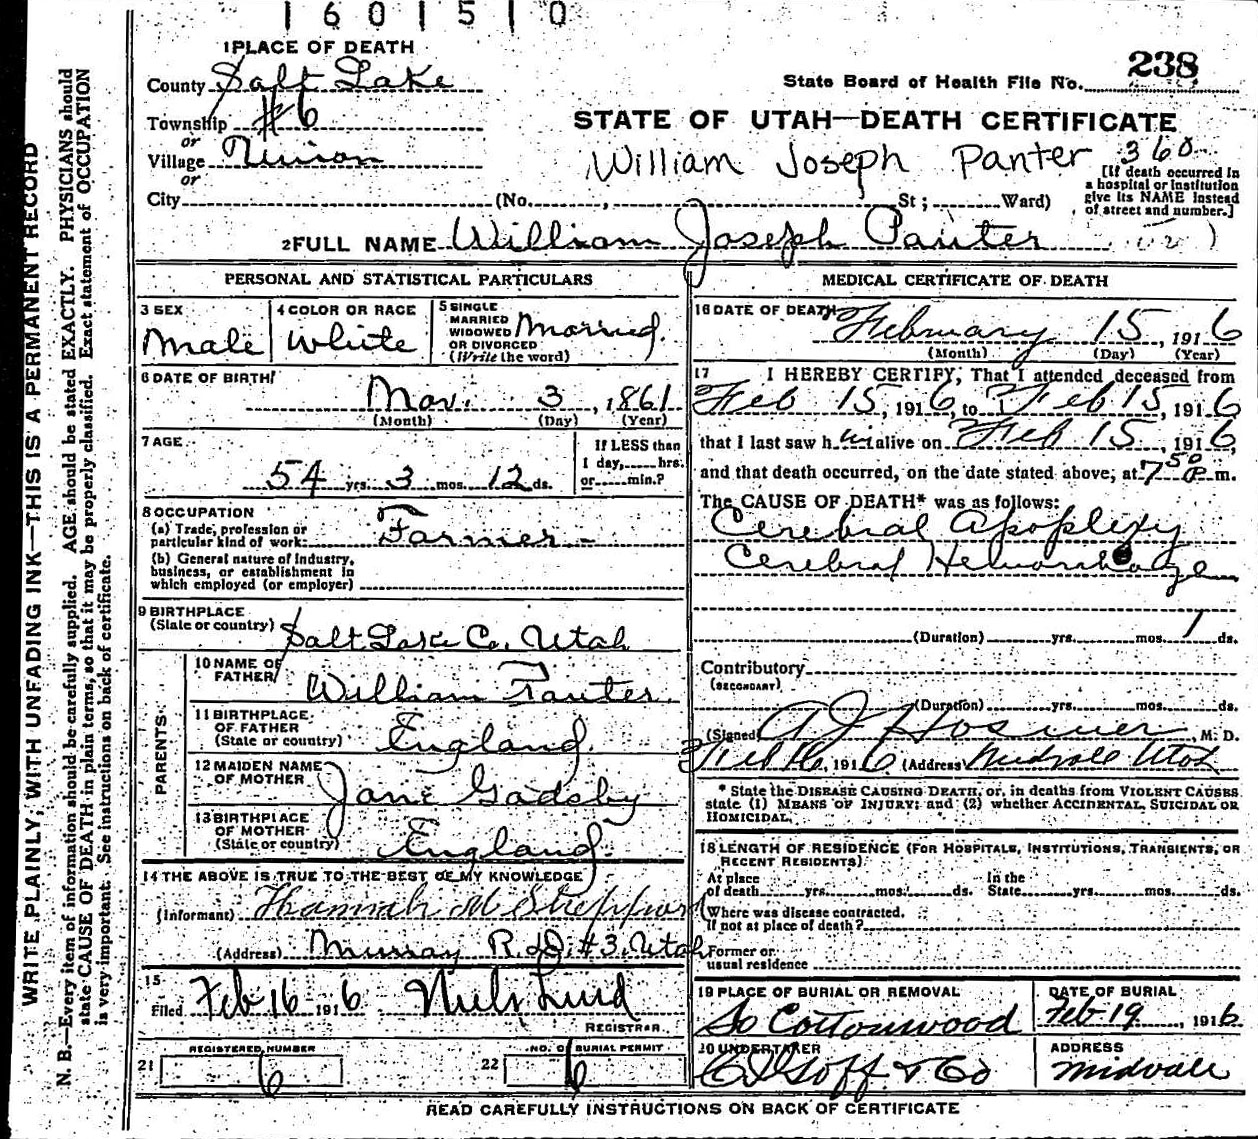 1601510
1 PLACE OF DEATH
County Salt Lake
State Board of Health File No. 238
Township #6
or
STATE OF UTAH—DEATH CERTIFICATE
Village Union
or
William Joseph Panter 360
[If death occurred in a hospital or institution give its NAME instead of street and number.]
City (No. , St ; Ward)
2 FULL NAME William Joseph Panter
PERSONAL AND STATISTICAL PARTICULARS
3 SEX Male
4 COLOR OR RACE White
5 SINGLE MARRIED WIDOWED OR DIVORCED (Write the word) Married.
6 DATE OF BIRTH
Nov. 3, 1861
(Month) (Day) (Year)
7 AGE
54 yrs. 3 mos. 12 ds.
If LESS than
1 day, hrs.
or min.?
8 OCCUPATION
(a) Trade, profession or
particular kind of work: Farmer
(b) General nature of industry,
business, or establishment in
which employed (or employer)
9 BIRTHPLACE
(State or country) Salt Lake Co. Utah
PARENTS
10 NAME OF FATHER William Panter.
11 BIRTHPLACE OF FATHER (State or country) England.
12 MAIDEN NAME OF MOTHER Jane Gadsby
13 BIRTHPLACE OF MOTHER (State or country) England.
14 THE ABOVE IS TRUE TO THE BEST OF MY KNOWLEDGE
(Informant) Hannah M
(Address) Murray R.D. #3, Utah
15
Filed Feb 16 1916 Niels Lind
REGISTRAR
21 REGISTERED NUMBER 6
22 NO. OF BURIAL PERMIT 6
MEDICAL CERTIFICATE OF DEATH
16 DATE OF DEATH
February 15, 1916
(Month) (Day) (Year)
17 I HEREBY CERTIFY, That I attended deceased from
Feb 15, 1916, to Feb 15, 1916
that I last saw him alive on Feb 15, 1916,
and that death occurred, on the date stated above, at 7 50 P. m.
The CAUSE OF DEATH* was as follows:
Cerebral Apoplexy
Cerebral Hemorrhage
(Duration) yrs. mos. 1 ds.
Contributory
(SECONDARY)
(Duration) yrs. mos. ds.
(Signed) A J Hosmer M. D.
Feb 16, 1916 (Address) Midvale Utah
* State the DISEASE CAUSING DEATH, or, in deaths from VIOLENT CAUSES
state (1) MEANS OF INJURY; and (2) whether ACCIDENTAL, SUICIDAL OR
HOMICIDAL.
18 LENGTH OF RESIDENCE (FOR HOSPITALS, INSTITUTIONS, TRANSIENTS, OR
RECENT RESIDENTS)
At place In the
of death yrs. mos. ds. State yrs. mos. ds.
Where was disease contracted.
If not at place of death?
Former or
usual residence
19 PLACE OF BURIAL OR REMOVAL
So Cottonwood
DATE OF BURIAL
Feb 19, 1916
20 UNDERTAKER
Goff & Co
ADDRESS
Midvale
READ CAREFULLY INSTRUCTIONS ON BACK OF CERTIFICATE
WRITE PLAINLY, WITH UNFADING INK—THIS IS A PERMANENT RECORD
N. B.—Every item of information should be carefully supplied. AGE should be stated EXACTLY. PHYSICIANS should
state CAUSE OF DEATH in plain terms, so that it may be properly classified. Exact statement of OCCUPATION
is very important. See instructions on back of certificate.